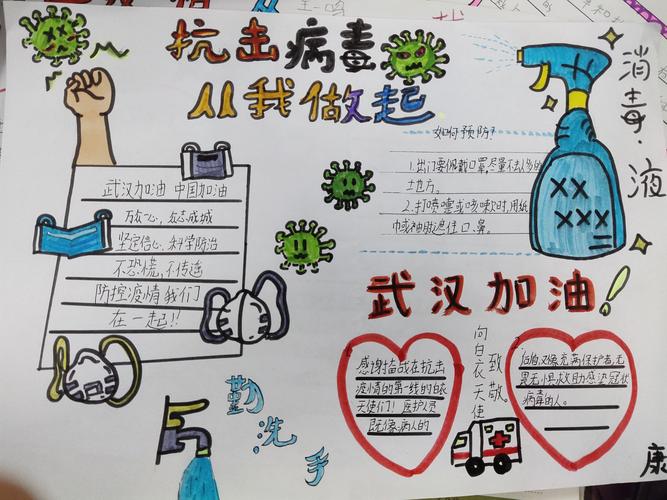 抗击病毒
从我做起
消毒·液
如何预防?
1.出门要佩戴口罩,尽量不去人多的
土地方。
2.打喷嚏或咳嗽时,用纸
巾或袖肘遮住口、鼻。
XX
XXX
武汉加油 中国加油
万众一心,众志成城
坚定信心,科学防治
不恐慌,不传谣
防控疫情我们
在一起!!
武汉加油!
感谢奋战在抗击
疫情的第一线的白衣
天使们!医护人员
既像病人的
向白衣天使
致敬
畏无惧救助感染冠状
病毒的人。
勤洗手
康